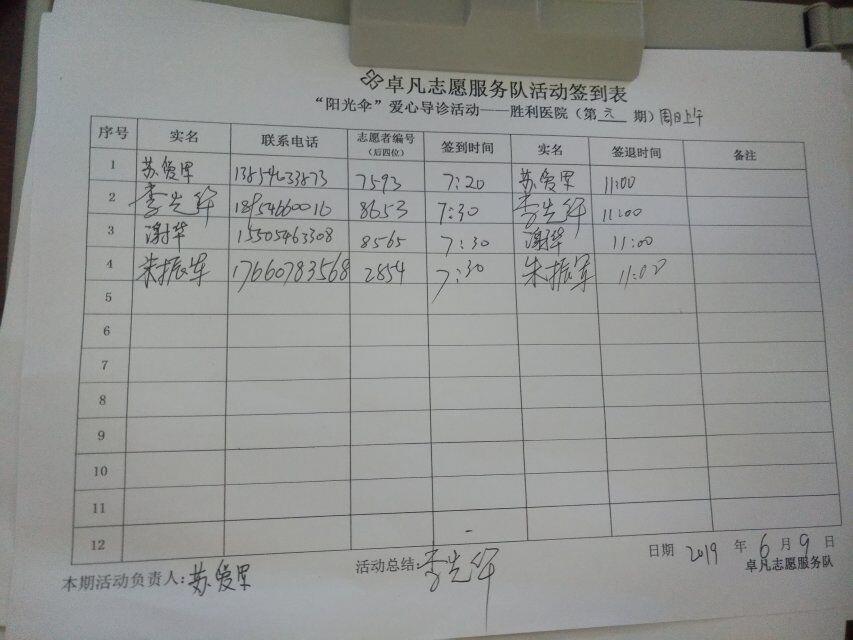 卓凡志愿服务队活动签到表
“阳光伞”爱心导诊活动——胜利医院（第 六 期）周日上午
序号 实名 联系电话 志愿者编号（后四位） 签到时间 实名 签退时间 备注
1 苏爱军 13854633873 7593 7:20 苏爱军 11:00
2 李光华 18954660010 8653 7:30 李光华 11:00
3 谢华 15505463308 8565 7:30 谢华 11:00
4 朱振军 17660783568 2854 7:30 朱振军 11:00
5
6
7
8
9
10
11
12
本期活动负责人:苏爱军 活动总结:李光华 日期 2019 年 6 月 9 日
卓凡志愿服务队